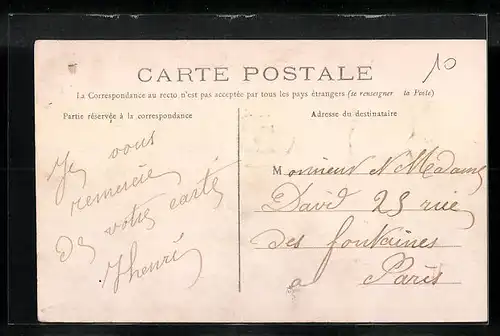 10
CARTE POSTALE
La Correspondance au recto n'est pas acceptée par tous les pays étrangers (se renseigner la Poste)
Partie réservée à la correspondance
Adresse du destinataire
Je vous
remercie
de votre carte
Henri
Monsieur & Madame
David 25 rue
des fontaines
a Paris